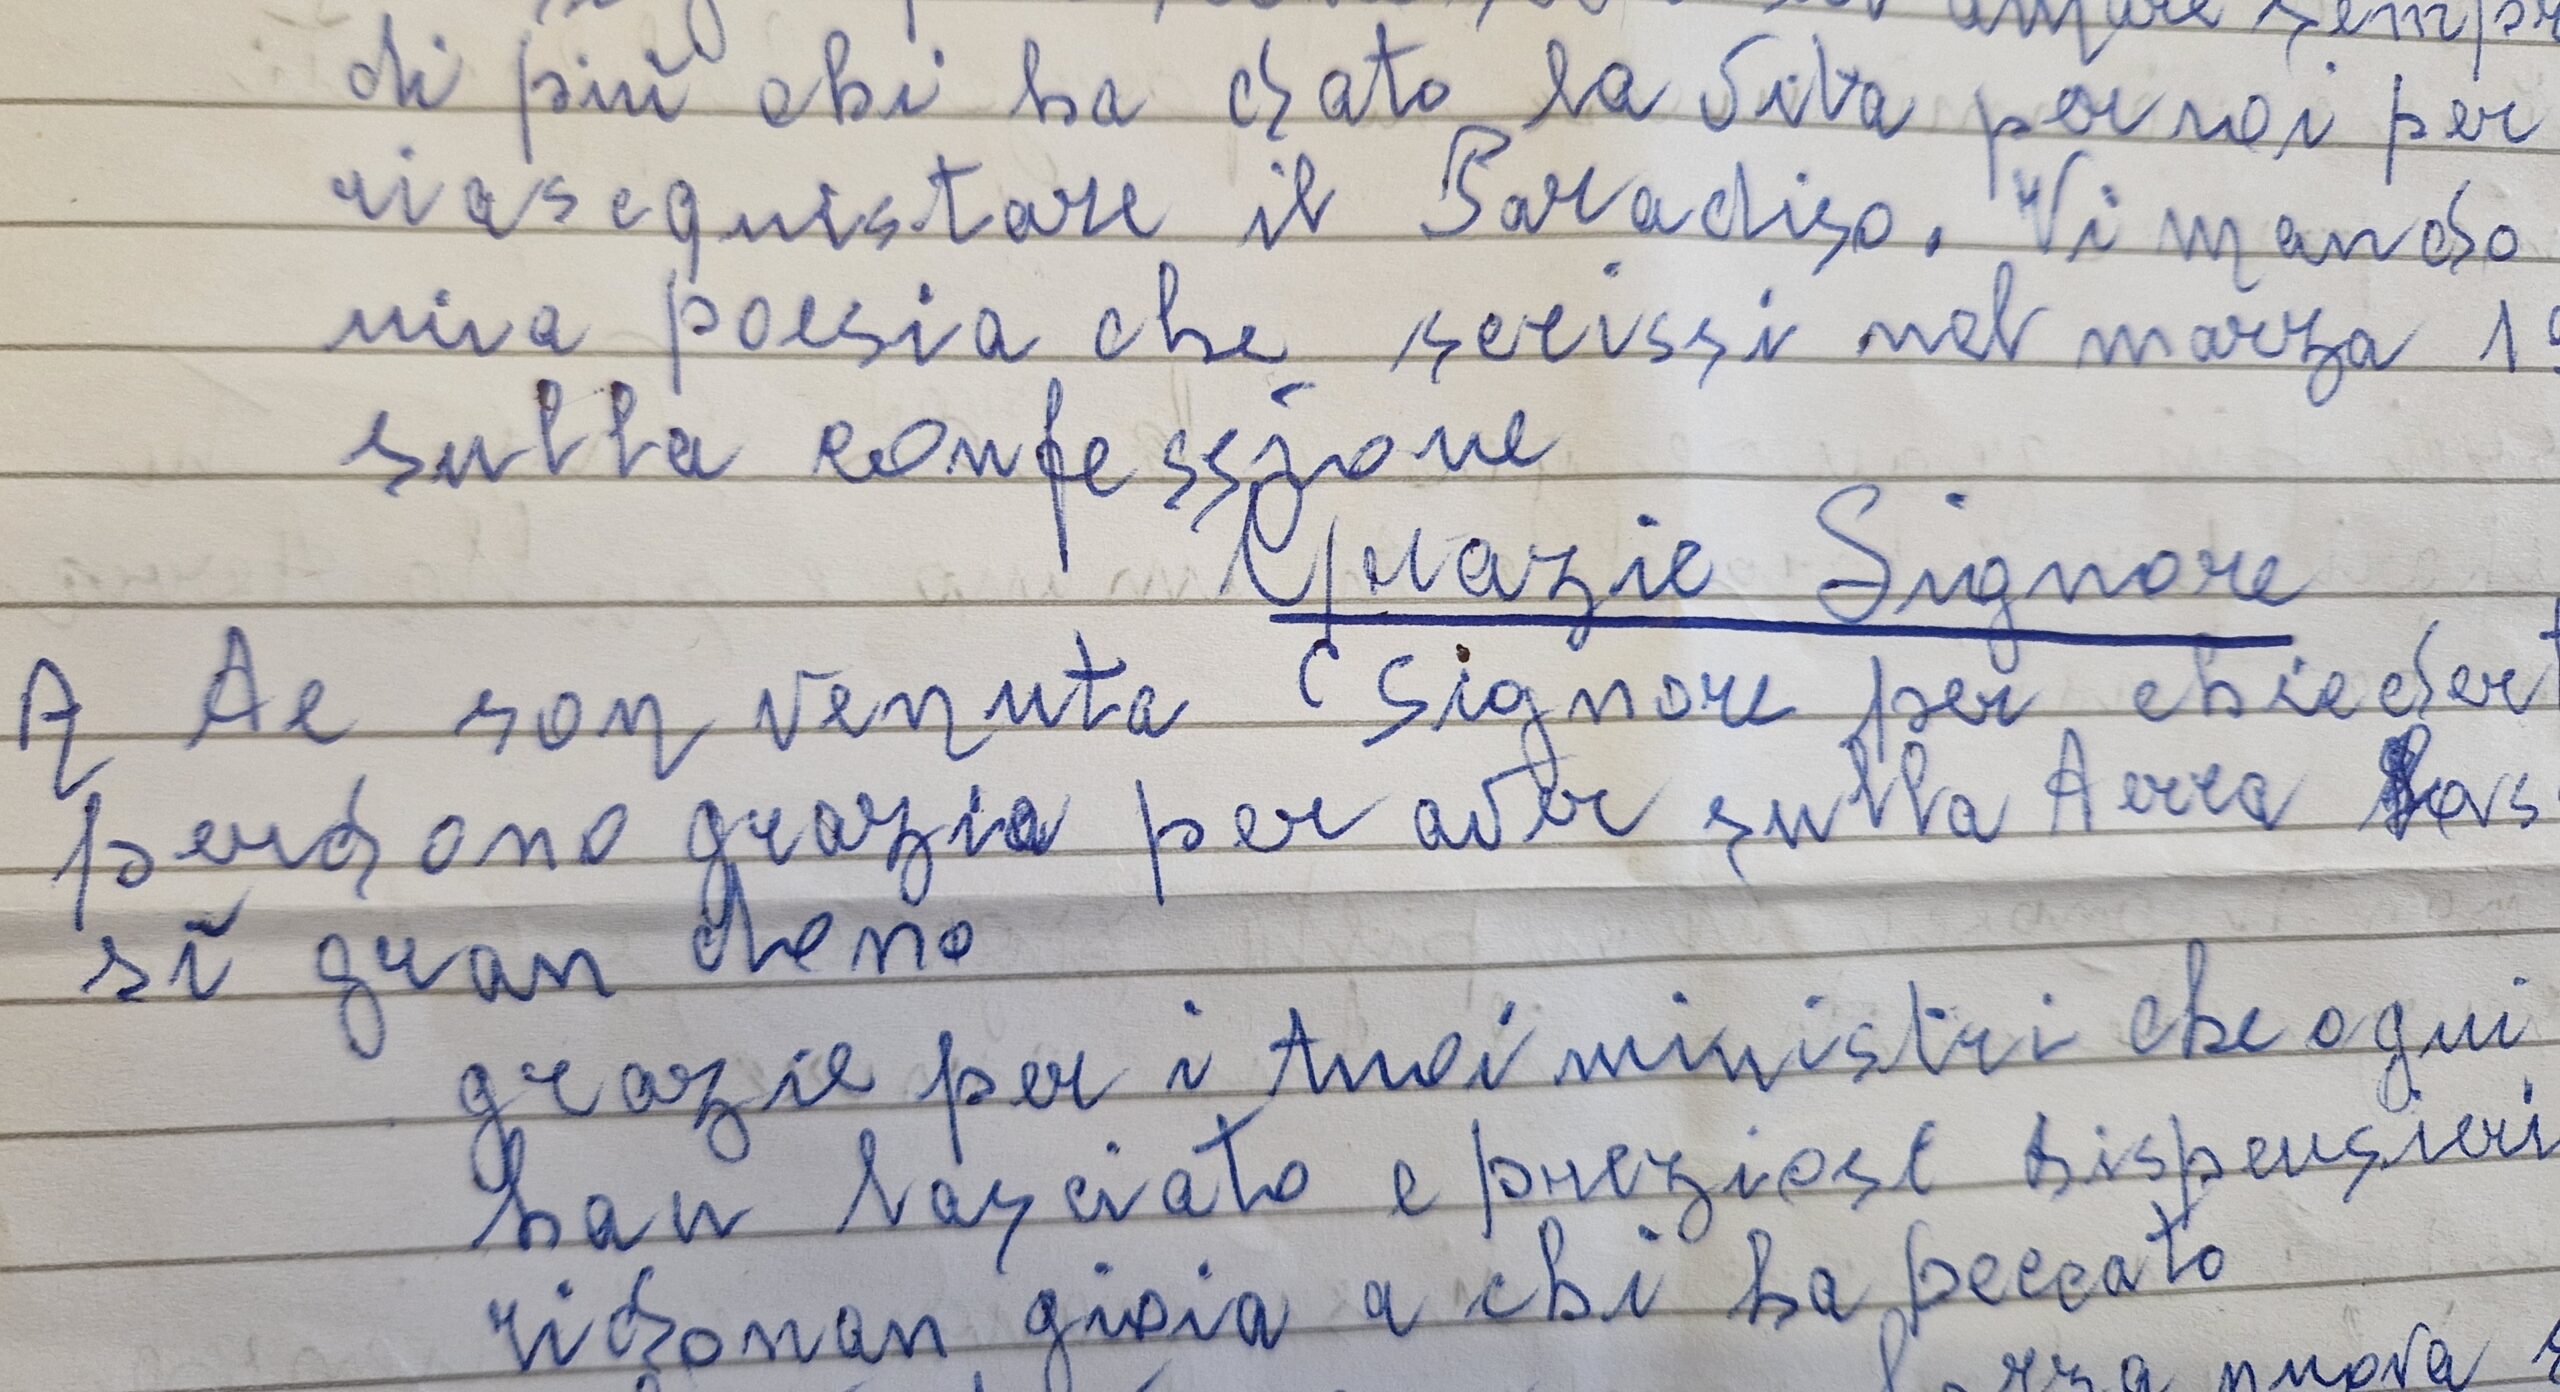 amare sempr
di più chi ha dato la Vita per noi per
riascquistare il Paradiso. Vi mando
mia poesia che scrissi nel marzo 19
sulla confessione
Grazie Signore
A Te son venuta Signore per chieder
perdono grazia per aver sulla Terra
sì gran dono
grazie per i tuoi ministri che ogni
han lasciato e preziose dispensieri
ridonan gioia a chi ha peccato
forza nuova